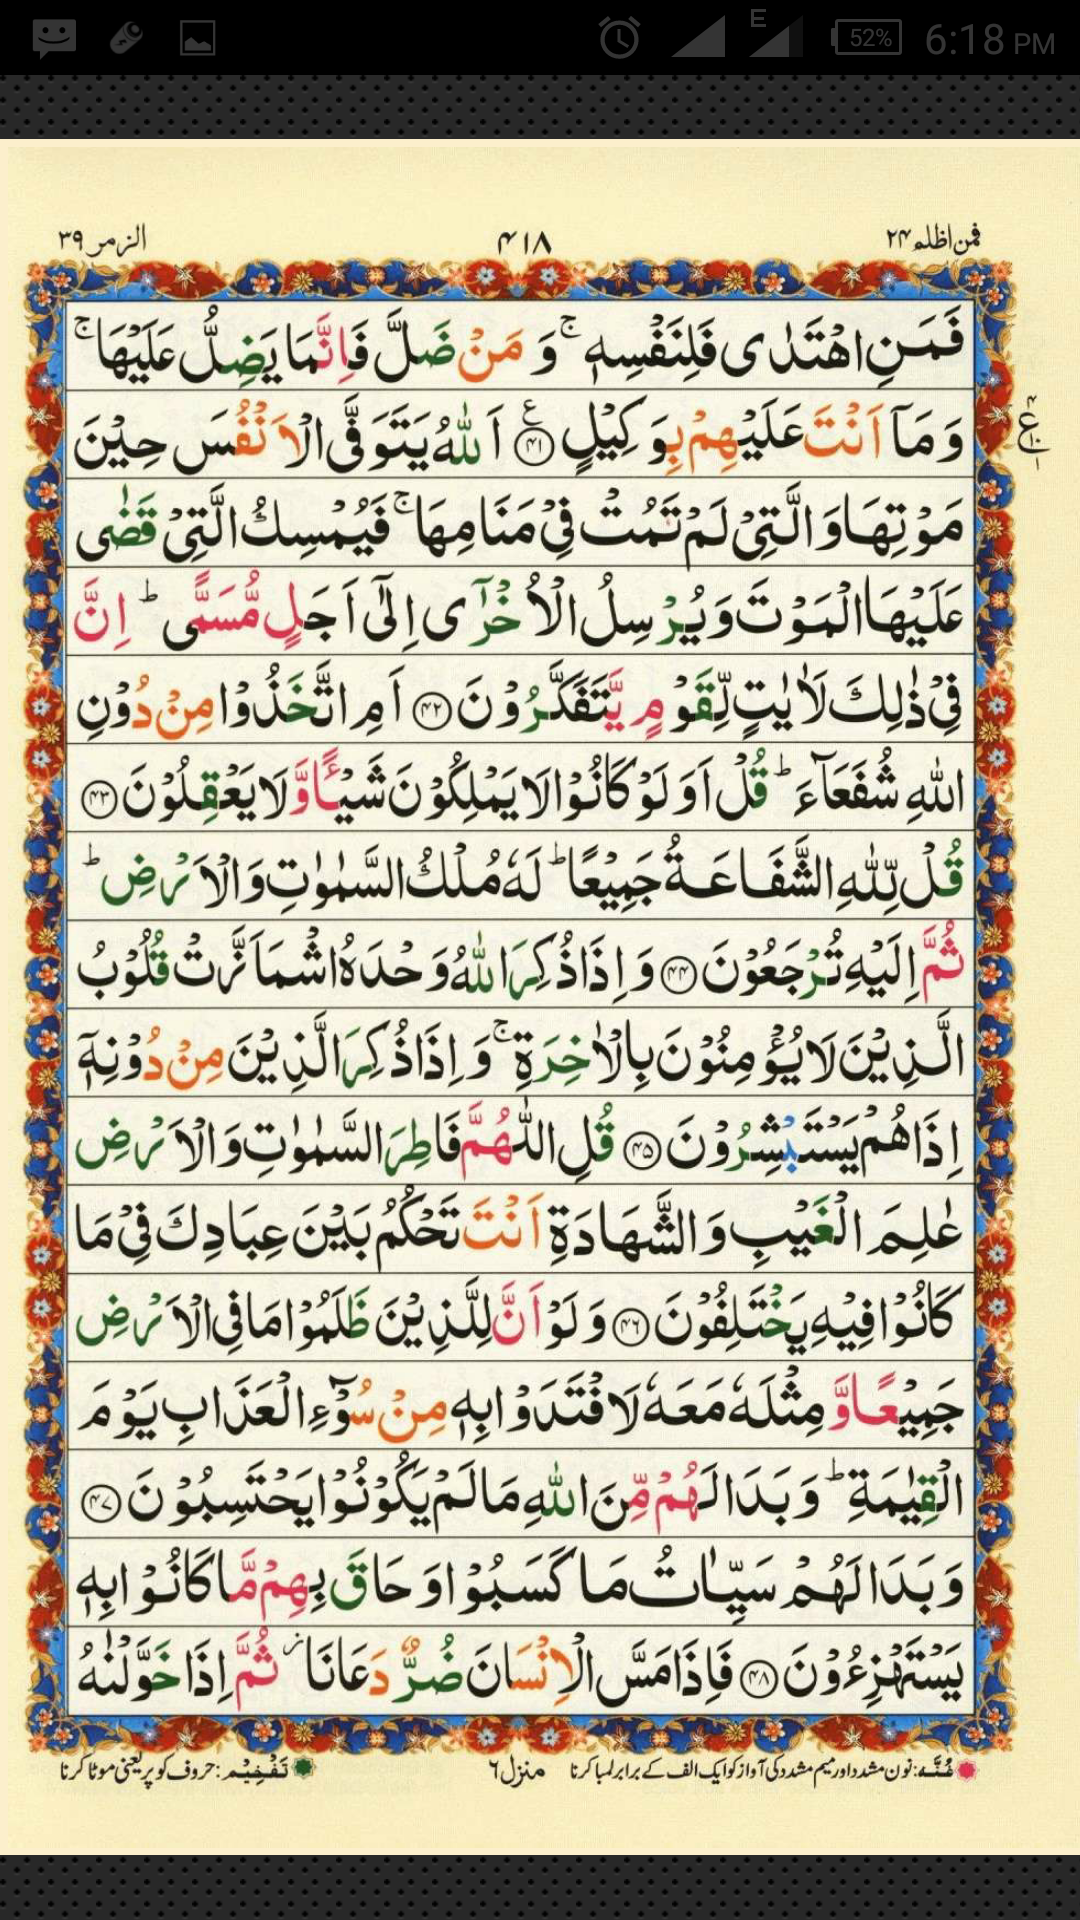 52% 6:18 PM
E
فمن اظلم ۲۴ ۴۱۸ الزمر ۳۹
فَمَنِ اهْتَدٰى فَلِنَفْسِهٖ ۚ وَ مَنْ ضَلَّ فَاِنَّمَا يَضِلُّ عَلَيْهَا ۚ
وَ مَاۤ اَنْتَ عَلَيْهِمْ بِوَكِيْلٍ ﴿۴۱﴾ ع اَللّٰهُ يَتَوَفَّى الْاَنْفُسَ حِيْنَ
مَوْتِهَا وَ الَّتِيْ لَمْ تَمُتْ فِيْ مَنَامِهَا ۚ فَيُمْسِكُ الَّتِيْ قَضٰى
عَلَيْهَا الْمَوْتَ وَ يُرْسِلُ الْاُخْرٰۤى اِلٰۤى اَجَلٍ مُّسَمًّى ؕ اِنَّ
فِيْ ذٰلِكَ لَاٰيٰتٍ لِّقَوْمٍ يَّتَفَكَّرُوْنَ ﴿۴۲﴾ اَمِ اتَّخَذُوْا مِنْ دُوْنِ
اللّٰهِ شُفَعَآءَ ؕ قُلْ اَوَ لَوْ كَانُوْا لَا يَمْلِكُوْنَ شَيْـًٔا وَّ لَا يَعْقِلُوْنَ ﴿۴۳﴾
قُلْ لِّلّٰهِ الشَّفَاعَةُ جَمِيْعًا ؕ لَهٗ مُلْكُ السَّمٰوٰتِ وَ الْاَرْضِ ؕ
ثُمَّ اِلَيْهِ تُرْجَعُوْنَ ﴿۴۴﴾ وَ اِذَا ذُكِرَ اللّٰهُ وَحْدَهُ اشْمَاَزَّتْ قُلُوْبُ
الَّذِيْنَ لَا يُؤْمِنُوْنَ بِالْاٰخِرَةِ ۚ وَ اِذَا ذُكِرَ الَّذِيْنَ مِنْ دُوْنِهٖۤ
اِذَا هُمْ يَسْتَبْشِرُوْنَ ﴿۴۵﴾ قُلِ اللّٰهُمَّ فَاطِرَ السَّمٰوٰتِ وَ الْاَرْضِ
عٰلِمَ الْغَيْبِ وَ الشَّهَادَةِ اَنْتَ تَحْكُمُ بَيْنَ عِبَادِكَ فِيْ مَا
كَانُوْا فِيْهِ يَخْتَلِفُوْنَ ﴿۴۶﴾ وَ لَوْ اَنَّ لِلَّذِيْنَ ظَلَمُوْا مَا فِي الْاَرْضِ
جَمِيْعًا وَّ مِثْلَهٗ مَعَهٗ لَافْتَدَوْا بِهٖ مِنْ سُوْٓءِ الْعَذَابِ يَوْمَ
الْقِيٰمَةِ ؕ وَ بَدَا لَهُمْ مِّنَ اللّٰهِ مَا لَمْ يَكُوْنُوْا يَحْتَسِبُوْنَ ﴿۴۷﴾
وَ بَدَا لَهُمْ سَيِّاٰتُ مَا كَسَبُوْا وَ حَاقَ بِهِمْ مَّا كَانُوْا بِهٖ
يَسْتَهْزِءُوْنَ ﴿۴۸﴾ فَاِذَا مَسَّ الْاِنْسَانَ ضُرٌّ دَعَانَا ۫ ثُمَّ اِذَا خَوَّلْنٰهُ
غُنَّہ : نون مشدد اور میم مشدد کی آواز کو ایک الف کے برابر لمبا کرنا منزل ۶ تَفْخِیْم : حروف کو پر یعنی موٹا کرنا
ع
۴
۱۰
۱